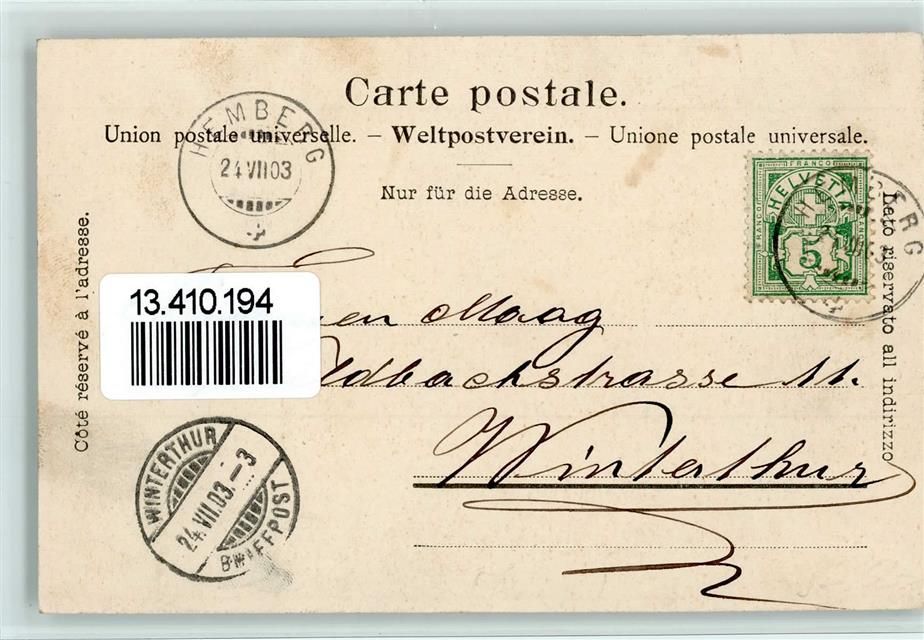 Carte postale.
Union postale universelle. – Weltpostverein. – Unione postale universale.
Nur für die Adresse.
HEMBERG
24 VII 03
FRANCO
HELVETIA
FRANCO
FRANCO
5
Côté réservé à l'adresse.
Lato riservato all indirizzo
13.410.194
Maag
Winterthur
WINTERTHUR
24.VII.03.–3
BRIEFPOST